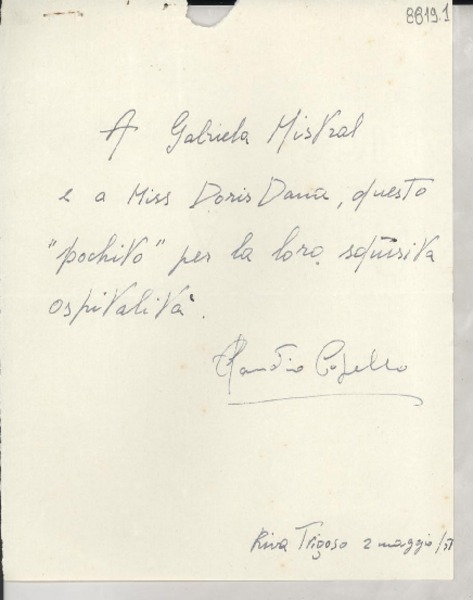 8619.1
A Gabriela Mistral
e a Miss Doris Dana, questo
"pochito" per la loro squisita
ospitalità.
Claudio
Riva Trigoso 2 maggio/51